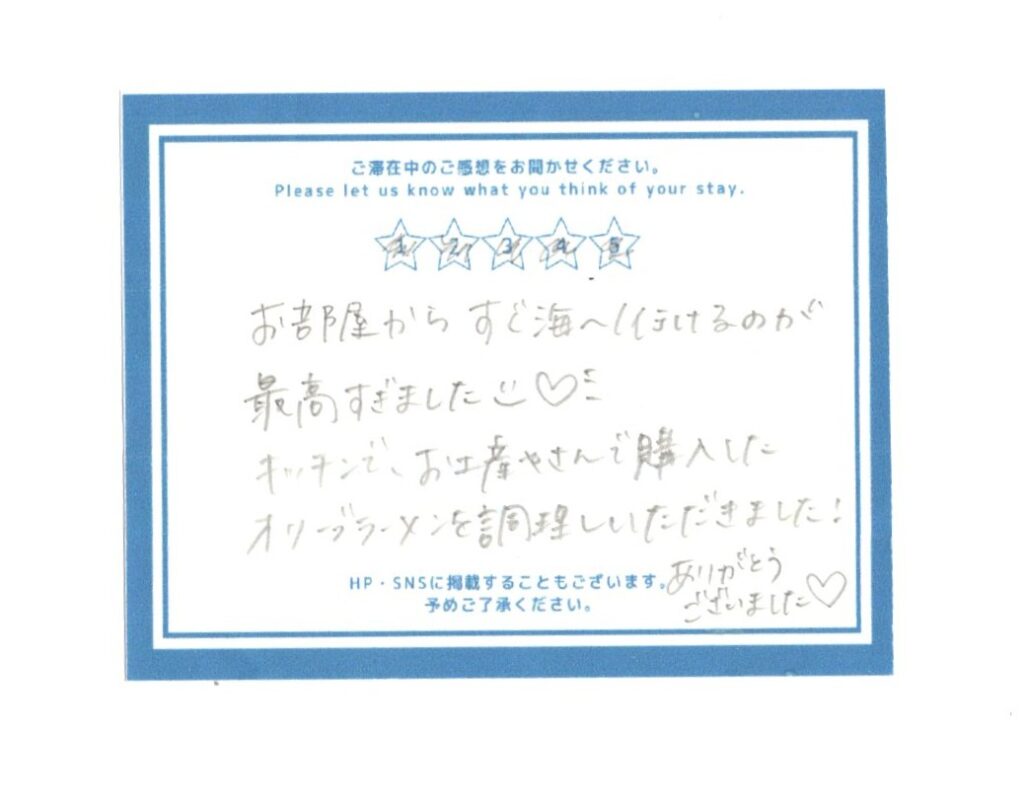 ご滞在中のご感想をお聞かせください。
Please let us know what you think of your stay.
1 2 3 4 5
お部屋からすぐ海へ行けるのが
最高すぎました
キッチンで、お土産やさんで購入した
オリーブラーメンを調理しいただきました!
HP・SNSに掲載することもございます。
予めご了承ください。
ありがとう
ございました